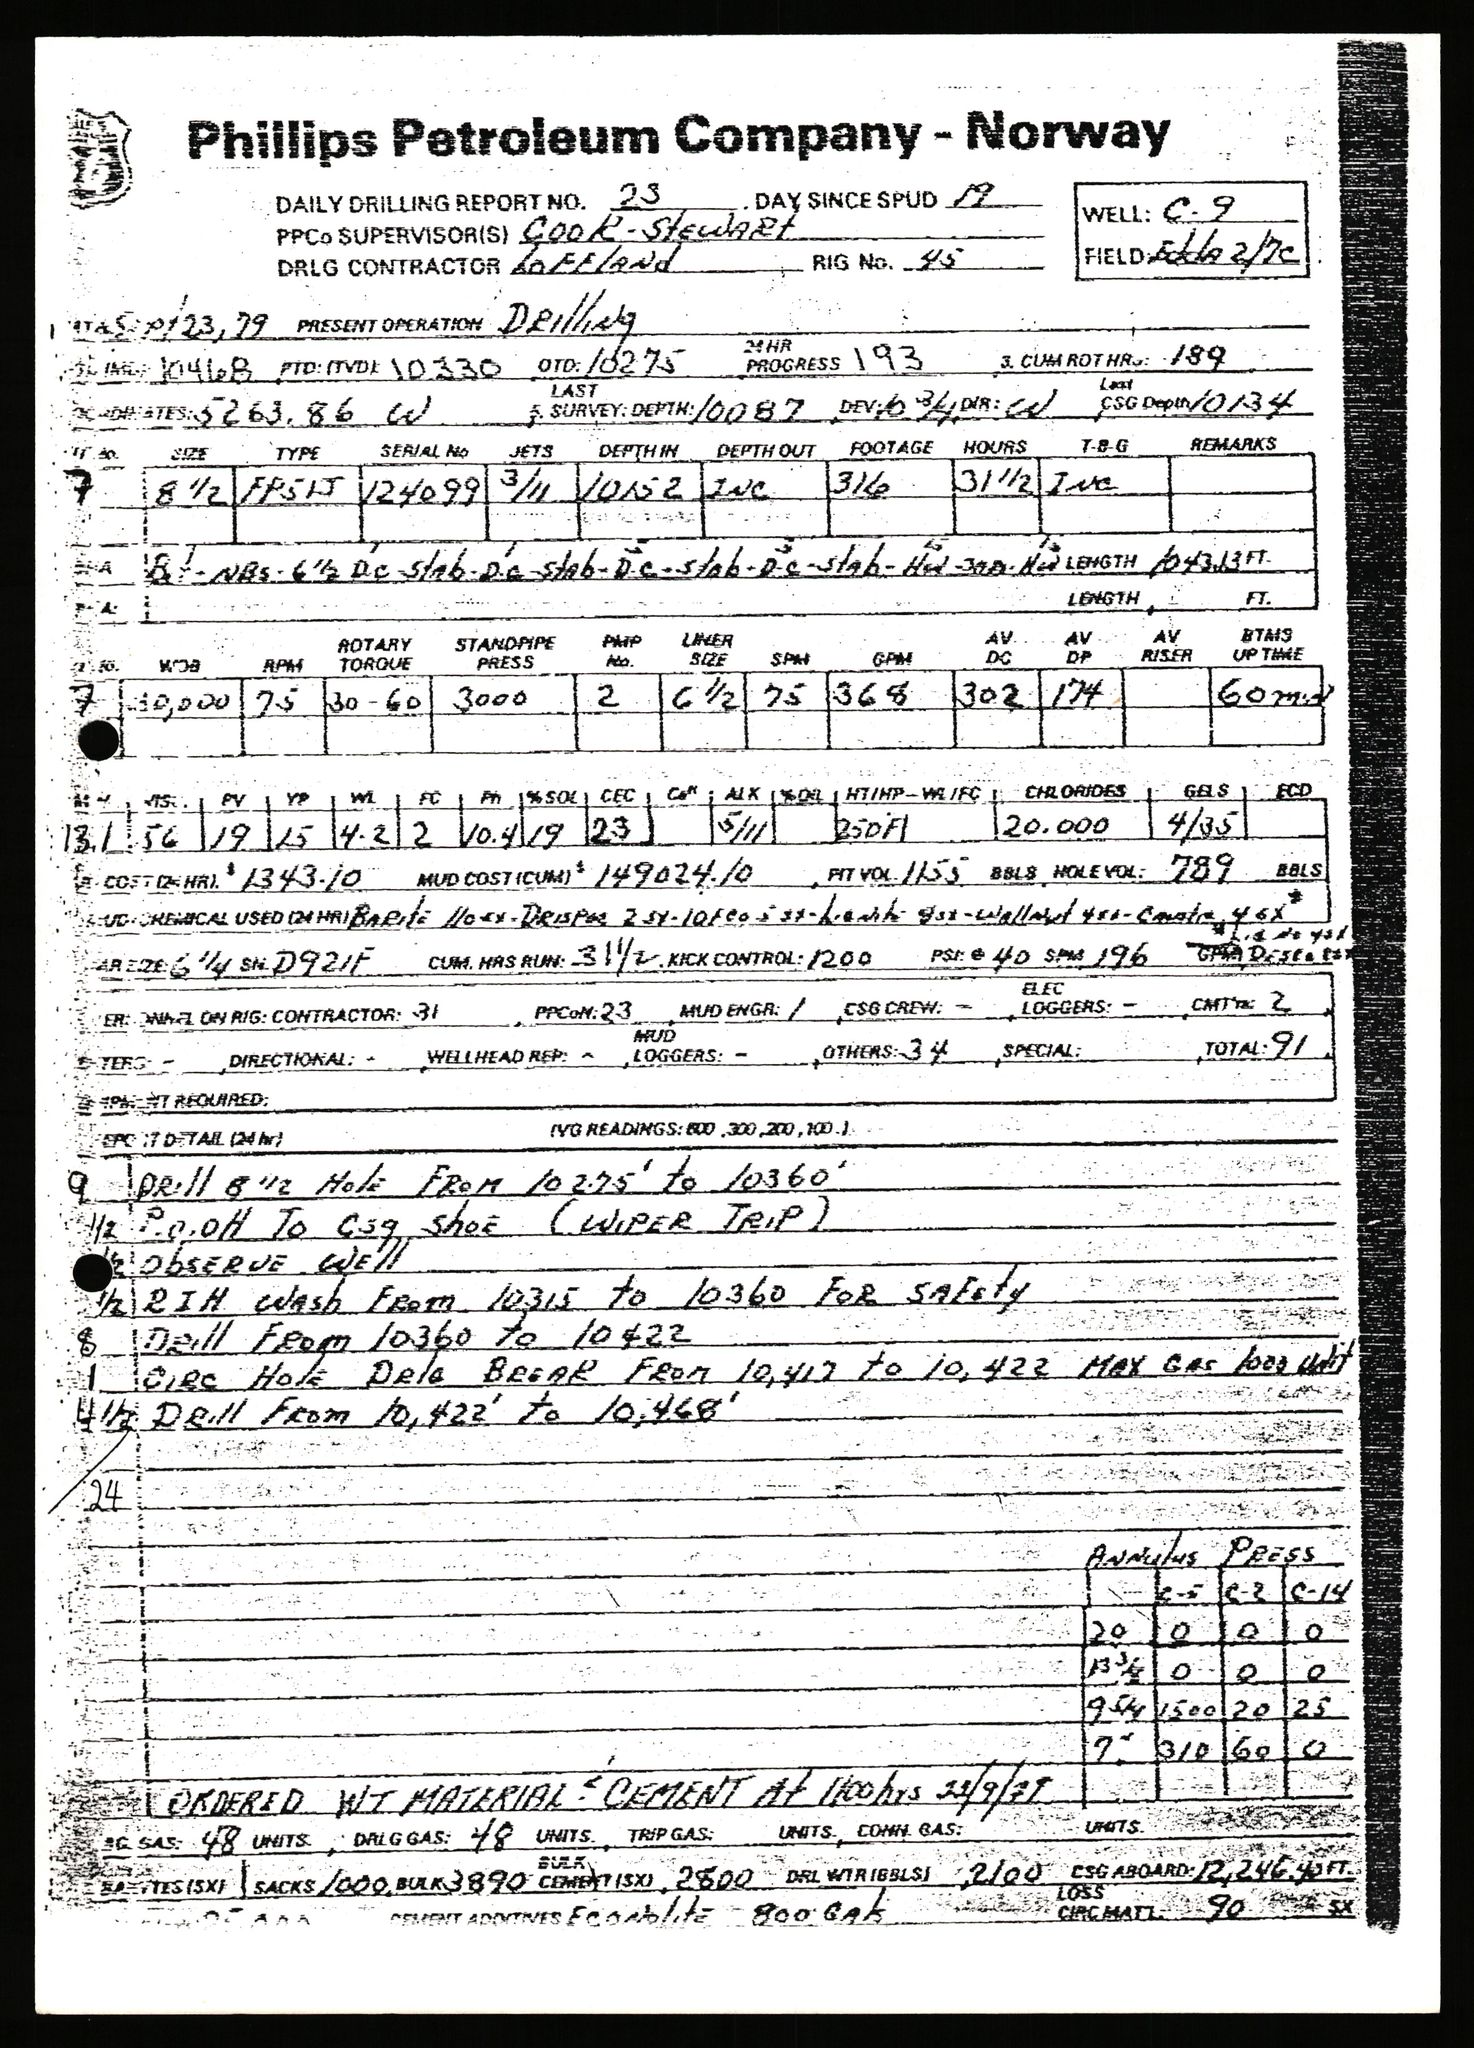 Phillips Petroleum Company - Norway
DAILY DRILLING REPORT NO. 23 DAY SINCE SPUD 19
WELL: C-9
PPCo SUPERVISOR(S) COOK - STEWART
DRLG CONTRACTOR LOFFLAND RIG No. 45
FIELD: Edda 2/7C
Sept 23, 79 PRESENT OPERATION DRilling
10468 PTD: (TVD): 10330 OTD: 10275 24 HR PROGRESS 193 3. CUM ROT HRS: 189
5263.86 W 5. LAST SURVEY: DEPTH: 10087 DEV: 10 3/4 DIR: W Last CSG Depth 10134
SIZE TYPE SERIAL No JETS DEPTH IN DEPTH OUT FOOTAGE HOURS T-B-G REMARKS
7 8 1/2 124099 3/11 10152 INC 316 31 1/2 INC
Bit - NBS - 6 1/2 DC - Stab - DC - Stab - DC - Stab - DC - Stab - HW - JAR - HW LENGTH 1043.13 FT.
LENGTH FT.
WOB RPM ROTARY TORQUE STANDPIPE PRESS PMP No. LINER SIZE SPM GPM AV DC AV DP AV RISER BTMS UP TIME
7 30,000 75 30-60 3000 2 6 1/2 75 368 302 174 60 min
VIS. PV YP WL FC Ph % SOL CEC Ca ALK % OIL HT/HP - WL/FC CHLORIDES GELS ECD
13.1 56 19 15 4.2 2 10.4 19 23 .5/11 250F 20.000 4/35
COST (24 HR). $ 1343.10 MUD COST (CUM) $ 149024.10 PIT VOL 1155 BBLS HOLE VOL: 789 BBLS
CHEMICAL USED (24 HR) BARITE 110 sx - DRISPAC 2 sx - 10 FCO 5 sx - Lignite 8 sx - Wallnut 4 sx - 4 sx
SIZE: 6 1/4 SN. D921F CUM. HRS RUN: 31 1/2 KICK CONTROL: 1200 PSI: @ 40 SPM 196 GPM
ON RIG: CONTRACTOR: 31 PPCoN: 23 MUD ENGR: 1 CSG CREW: - ELEC LOGGERS: - CMT'R: 2
- DIRECTIONAL: - WELLHEAD REP: - MUD LOGGERS: - OTHERS: 34 SPECIAL: TOTAL: 91
REQUIRED:
DETAIL (24 hr) (VG READINGS: 600, 300, 200, 100.)
9 DRill 8 1/2 Hole FROM 10275' to 10360'
1/2 P.O.OH TO CSg SHOE (WIPER TRIP)
1/2 OBSERVE WEll
1/2 RIH WASH FROM 10315 to 10360 FOR SAFEty
8 DRill FROM 10360 to 10422
1 CIRC HOlE DRlG BREAK FROM 10,417 to 10,422 MAX GAS 1000 unit
4 1/2 DRill FROM 10,422' to 10,468'
24
ANNulus PRESS
C-5 C-2 C-14
20 0 0 0
13 3/8 0 0 0
9 5/8 1500 20 25
7" 310 60 0
ORDERED WT MATERIAL & CEMENT At 1100 hrs 23/9/79
GAS: 48 UNITS. DRLG GAS: 48 UNITS. TRIP GAS: UNITS, CONN. GAS: UNITS.
(SX) SACKS 1000 BULK 3890 BULK CEMENT (SX) 2800 DRL WTR (BBLS) 2100 CSG ABOARD: 12,246.40 FT.
CEMENT ADDITIVES Econolite 800 GAls LOSS CIRC MATL. 90 SX